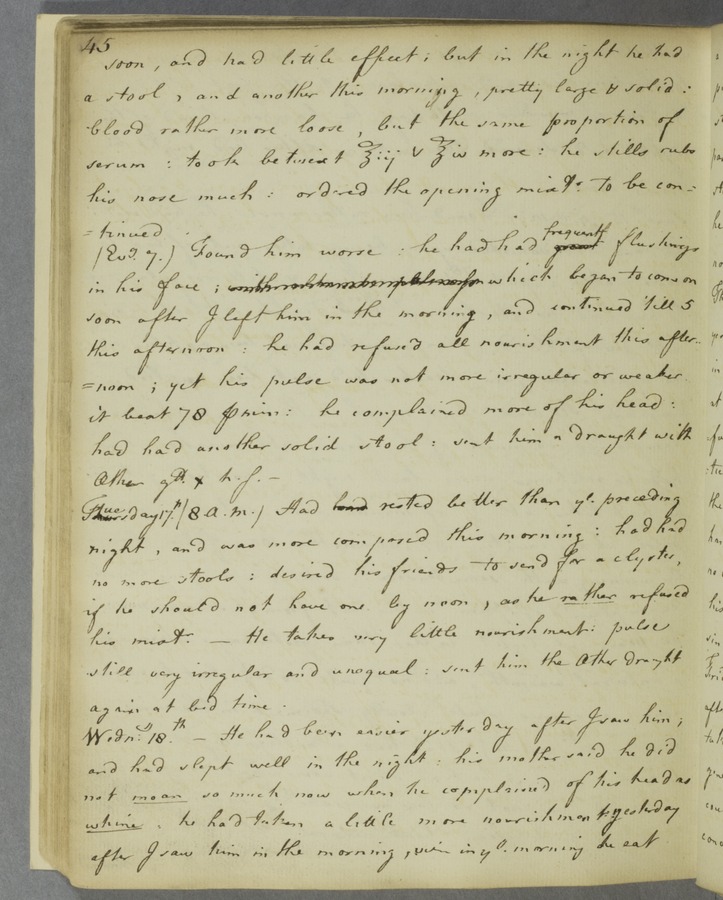 45
soon, and had little effect; but in the night he had
a stool, and another this morning, pretty large & solid:
blood rather more loose, but the same proportion of
serum: took betwixt ℥iij & ℥iv more: he stills rubs
his nose much: ordered the opening mixt. to be con=
=tinued
(Ev. 7.) Found him worse: he had had frequent flushings
in his face; which began to come on
soon after I left him in the morning, and continued 'till 5
this afternoon: he had refused all nourishment this after=
=noon; yet his pulse was not more irregular or weaker
it beat 78 ⅌ min: he complained more of his head:
had had another solid stool: sent him a draught with
Æther gtt. x h. s. —
Tuesday 17th (8 a.m.) Had rested better than ye. preceding
night, and was more composed this morning: had had
no more stools: desired his friends to send for a clyster,
if he should not have one by noon, as he rather refused
his mixt. — He takes very little nourishment: pulse
still very irregular and unequal: sent him the Æther draught
again at bed time.
Wedns. 18th — He had been easier yesterday after I saw him;
and had slept well in the night: his mother said he did
not moan so much now when he complained of his head as
whine. he had taken a little more nourishment yesterday
after I saw him in the morning, in ye. morning he eat